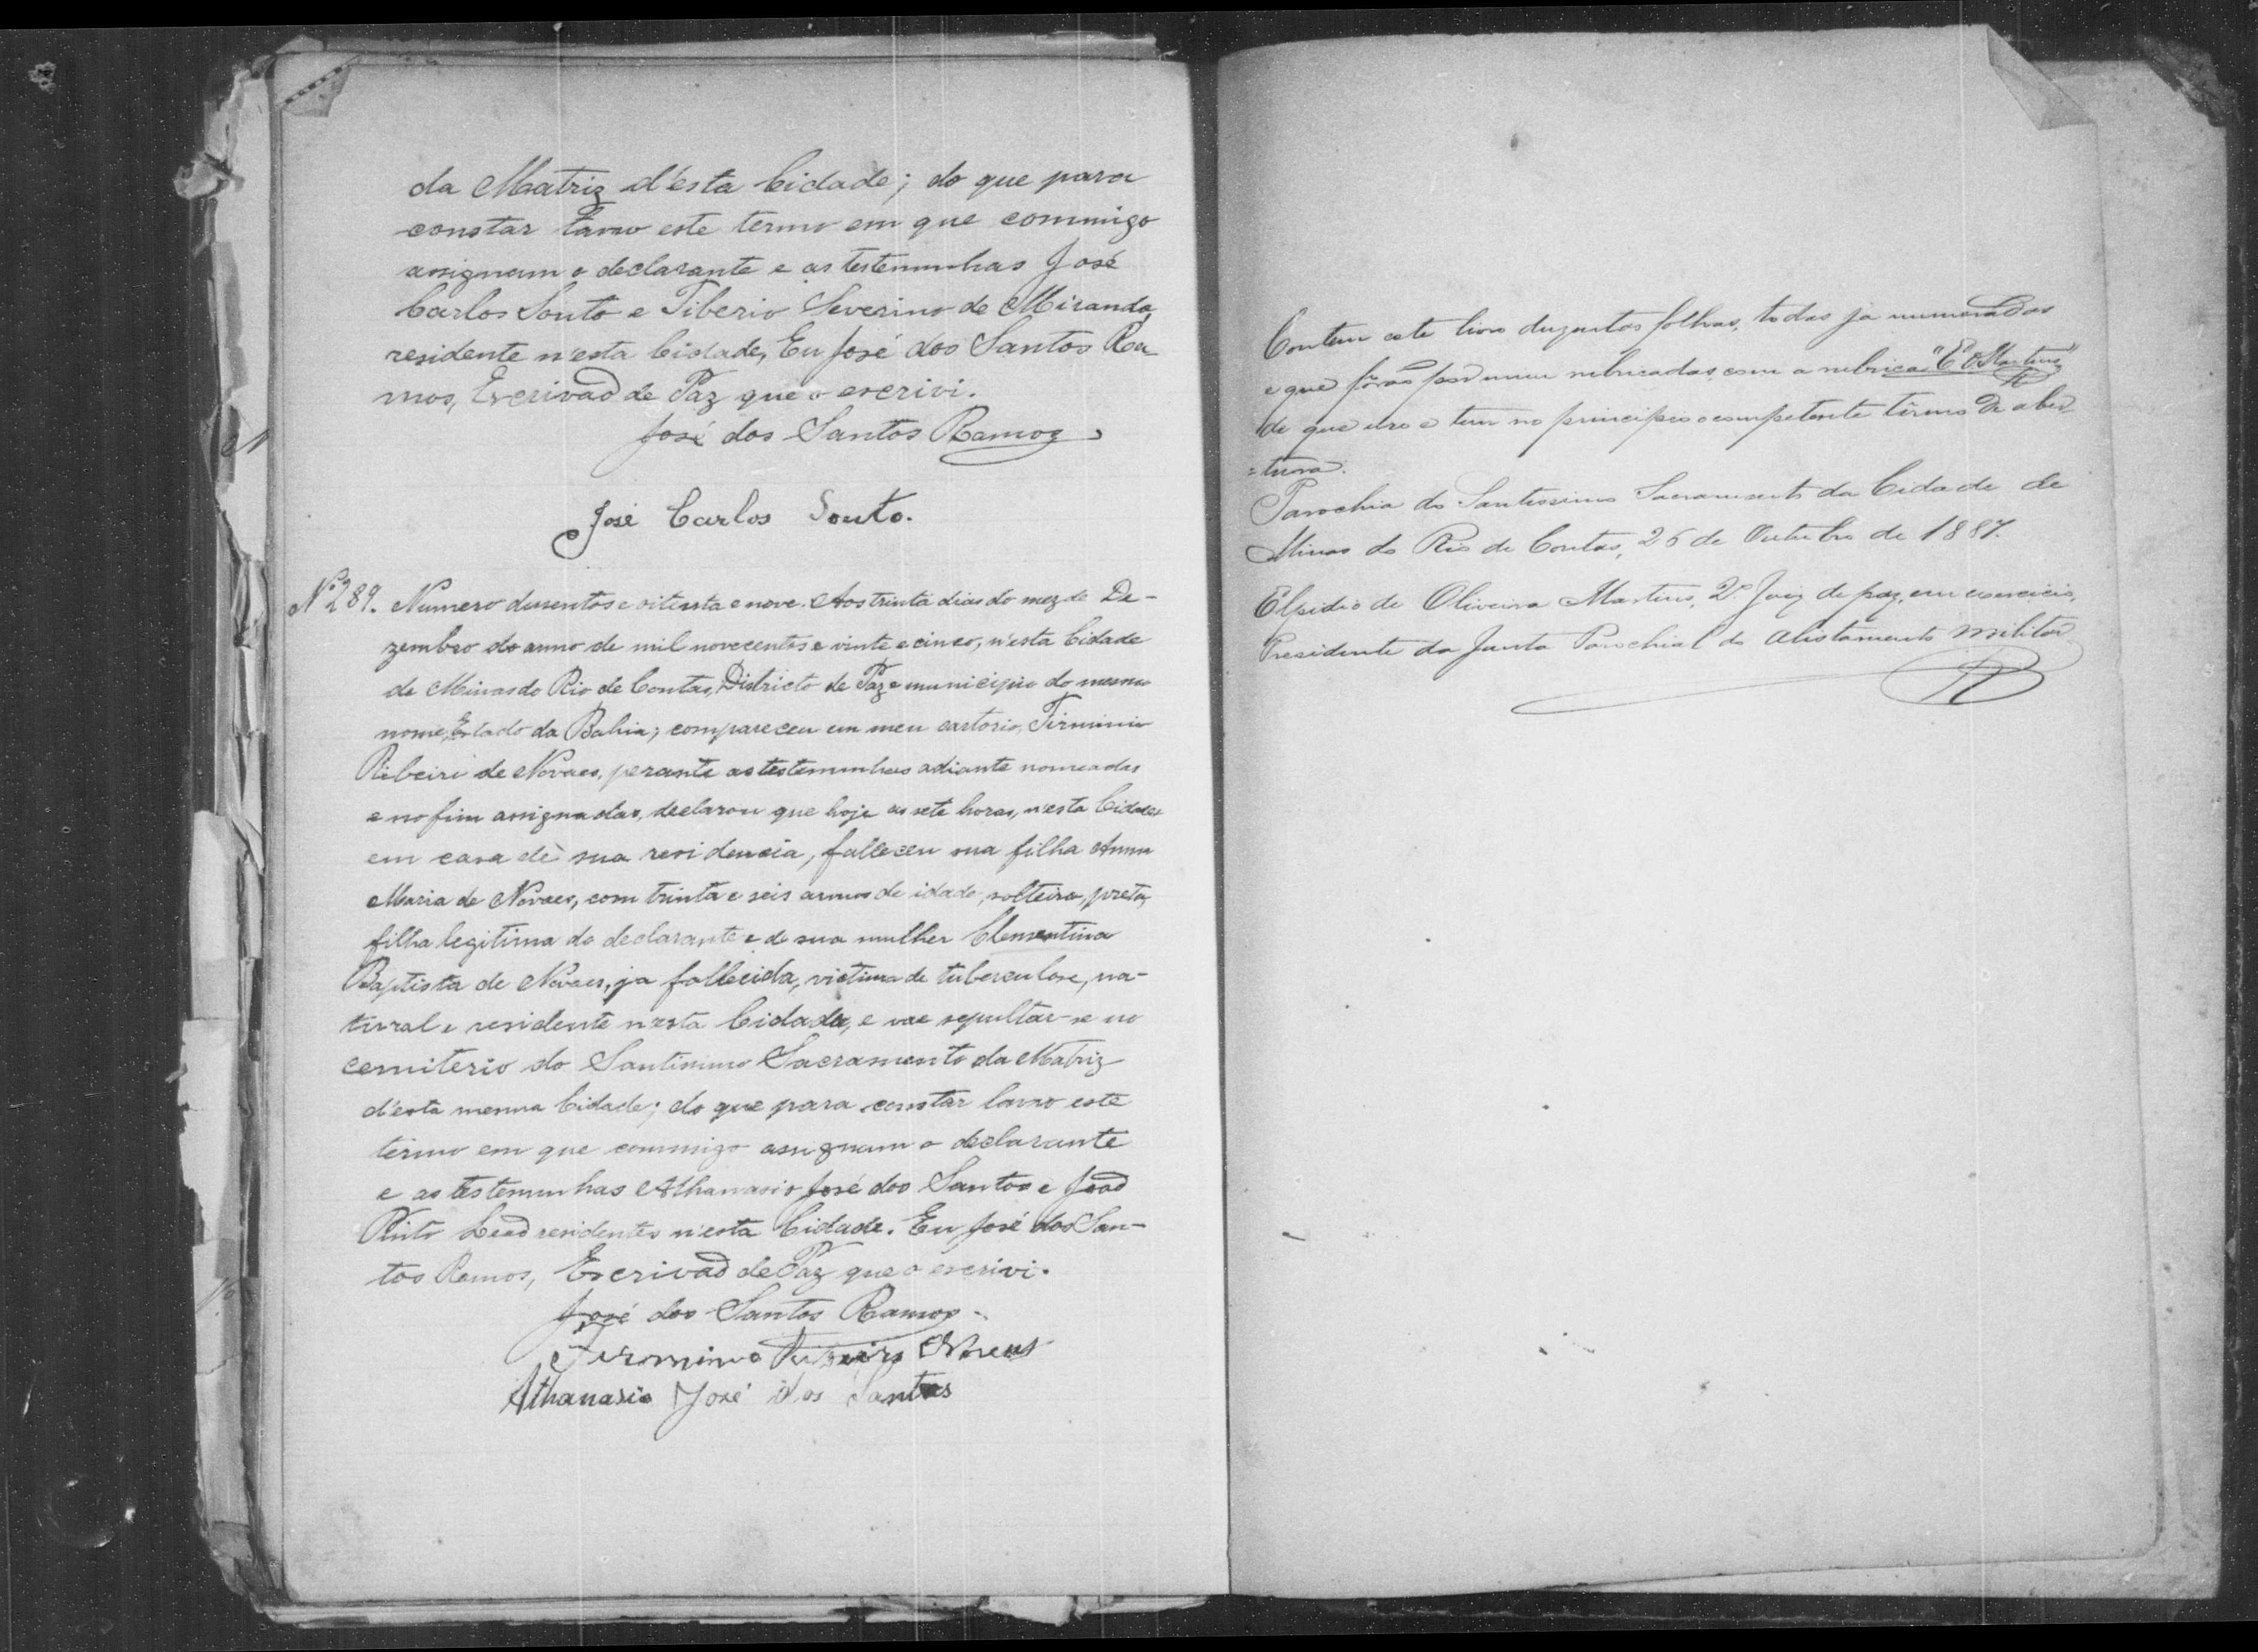 da Matriz d'esta Cidade; do que para
constar lavro este termo em que commigo
assignam o declarante e as testemunhas José
Carlos Souto e Tiberio Severino de Miranda,
residente n'esta Cidade, Eu José dos Santos Ra-
mos, Escrivaõ de Paz que o escrivi.
José dos Santos Ramos
José Carlos Souto.
Nº 289. Numero dusentos e oitenta e nove. Aos trinta dias do mez de De-
zembro do anno de mil novecentos e vinte e cinco, n'esta Cidade
de Minas do Rio de Contas, Districto de Paz e municipio do mesmo
nome, Estado da Bahia; compareceu em meu cartorio, Firminio
Ribeiri de Novaes, perante as testemunhas adiante nomeadas
e no fim assignadas, declarou que hoje as sete horas, n'esta Cidade
em casa de sua residencia, falleceu sua filha Anna
Maria de Novaes, com trinta e seis annos de idade, solteira, preta,
filha legitima do declarante e de sua mulher Clementina
Baptista de Novaes, ja fallecida, victima de tuberculose, na-
tural e residente n'esta Cidade, e vae sepultar-se no
cemiterio do Santissimo Sacramento da Matriz
d'esta mesma Cidade; do que para constar lavro este
termo em que commigo assignam o declarante
e as testemunhas Athanasio José dos Santos e Joaõ
Pinto Leaõ residentes n'esta Cidade. Eu José dos San-
tos Ramos, Escrivaõ de Paz que o escrivi.
José dos Santos Ramos
Firmino Novaes
Athanasio José dos Santos
Contem este livro duzentas folhas, todas ja numeradas
e que fôraõ por mim rubricadas, com a rubrica "E O Martins"
de que uso e tem no principio o competente têrmo de aber
=tura.
Parochia do Santissimo Sacramento da Cidade de
Minas do Rio de Contas, 26 de Outubro de 1887.
Elpidio de Oliveira Martins, 2º Juiz de paz, em exercicio,
Presidente da Junta Parochial do Alistamento militar